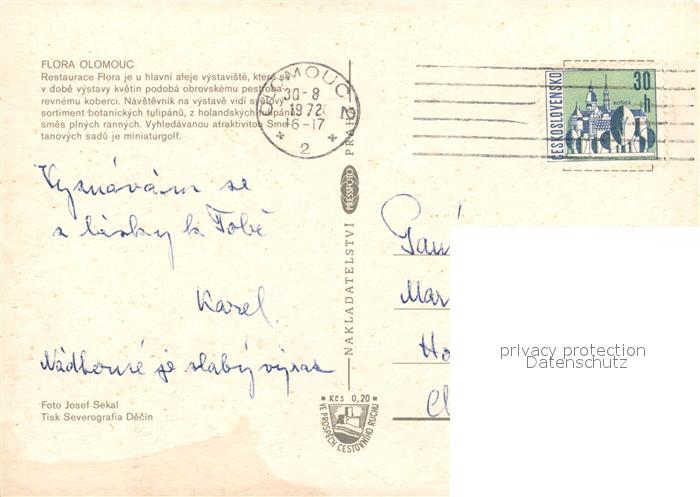 FLORA OLOMOUC
Restaurace Flora je u hlavní aleje výstaviště, která se
v době výstavy květin podobá obrovskému pestroba-
revnému koberci. Návštěvník na výstavě vidí světový
sortiment botanických tulipánů, z holandských tulipánů
směs plných ranných. Vyhledávanou atraktivitou Sme-
tanových sadů je miniaturgolf.
OLOMOUC 2
30-8
1972
16-17
2
ČESKOSLOVENSKO
30
h
KOŠICE
Vyznávám se
z lásky k Tobě
Karel
Nádherné je slabý výraz
NAKLADATELSTVÍ PRESSFOTO PRAHA
Paní
Mar
Ho
privacy protection
Datenschutz
Foto Josef Sekal
Tisk Severografia Děčín
Kčs 0,20
VE PROSPĚCH CESTOVNÍHO RUCHU